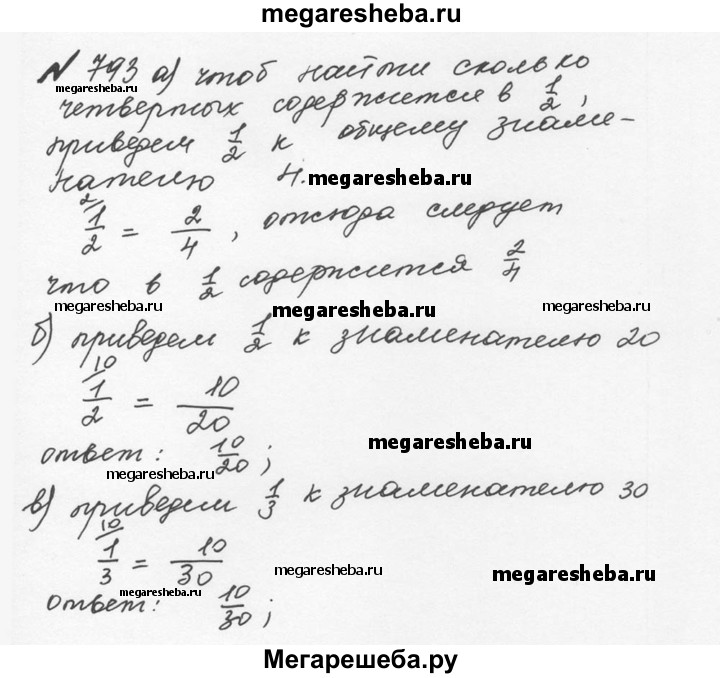 megaresheba.ru
N 793 а) чтоб найти сколько
четвертых содержится в 1/2,
приведем 1/2 к общему знаме-
нателю 4. megaresheba.ru
1/2 ² = 2/4, отсюда следует
что в 1/2 содержится 2/4
megaresheba.ru megaresheba.ru megaresheba.ru
б) приведем 1/2 к знаменателю 20
1/2 ¹⁰ = 10/20
ответ: 10/20; megaresheba.ru
megaresheba.ru
в) приведем 1/3 к знаменателю 30
1/3 ¹⁰ = 10/30
megaresheba.ru megaresheba.ru megaresheba.ru
ответ: 10/30;
Мегарешеба.ру